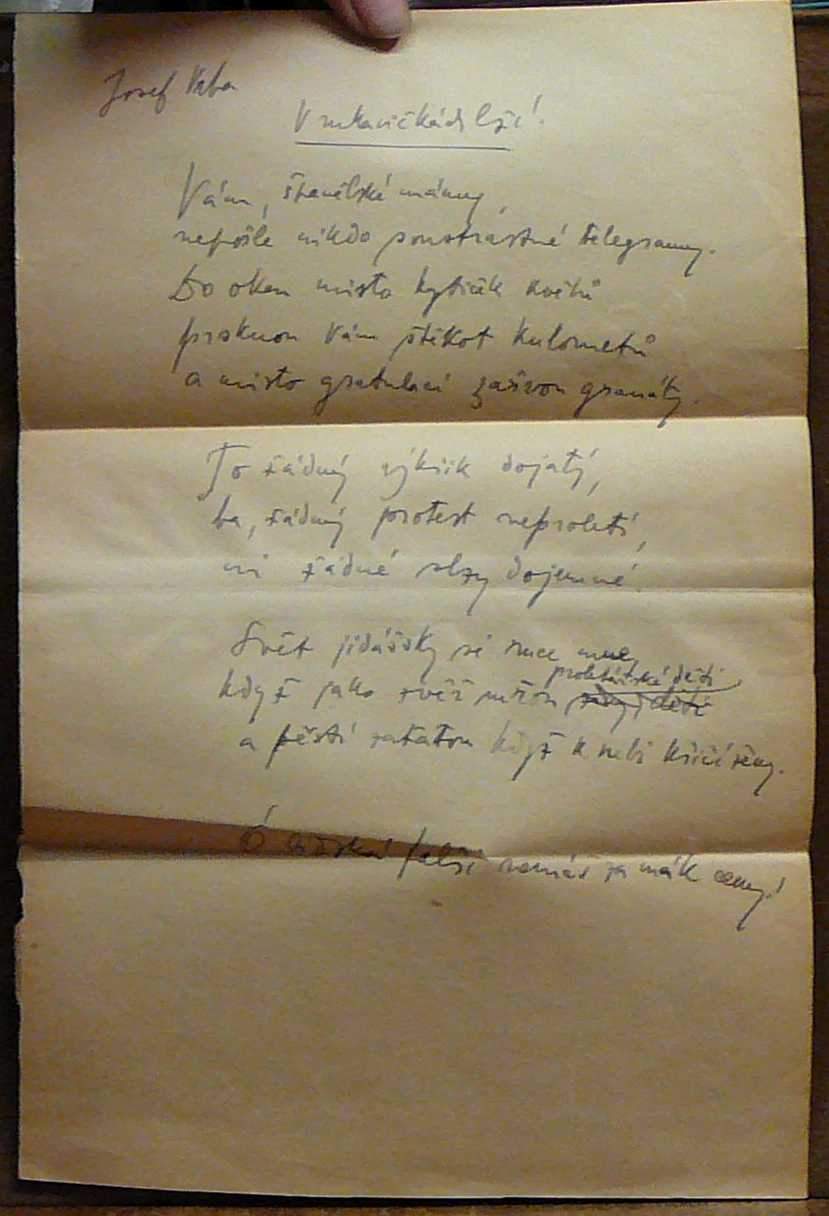 Josef Vrba
V rukavičkách lží!
Vám, španělské mámy,
nepošle nikdo soustrastné telegramy.
Do oken místo kytiček květů
prsknou vám štěkot kulometů
a místo gratulací zařvou granáty.
To žádný výkřik dojatý,
ba, žádný protest neproletí,
ni žádné slzy dojemné.
Svět jidášsky si ruce mne,
když jako zvěř mřou
proletářské děti
a pěstí zatatou když k nebi křičí ženy.
Ó lidská falši nemáš za mák ceny!